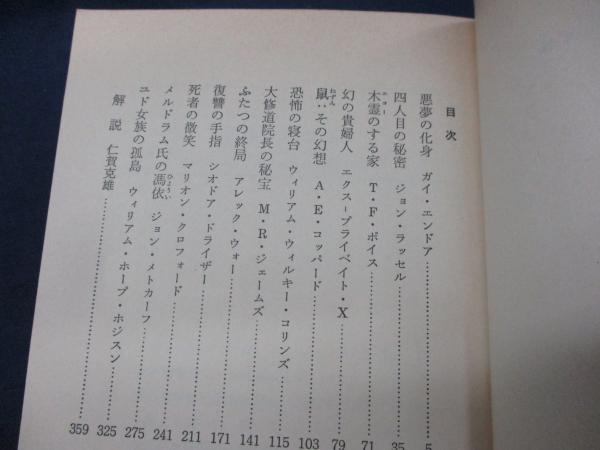 目次
悪夢の化身　ガイ・エンドア……………5
四人目の秘密　ジョン・ラッセル……………35
木霊のする家　T・F・ポイス……………71
エコー
幻の貴婦人　エクス＝プライベイト・X……………79
鼠：その幻想　A・E・コッパード……………103
ねずみ
恐怖の寝台　ウィリアム・ウィルキー・コリンズ……………115
大修道院長の秘宝　M・R・ジェームズ……………141
ふたつの終局　アレック・ウォー……………171
復讐の手指　シオドア・ドライザー……………211
死者の微笑　マリオン・クロフォード……………241
メルドラム氏の馮依　ジョン・メトカーフ……………275
ひょうい
ユド女族の孤島　ウィリアム・ホープ・ホジスン……………325
解説　仁賀克雄……………359